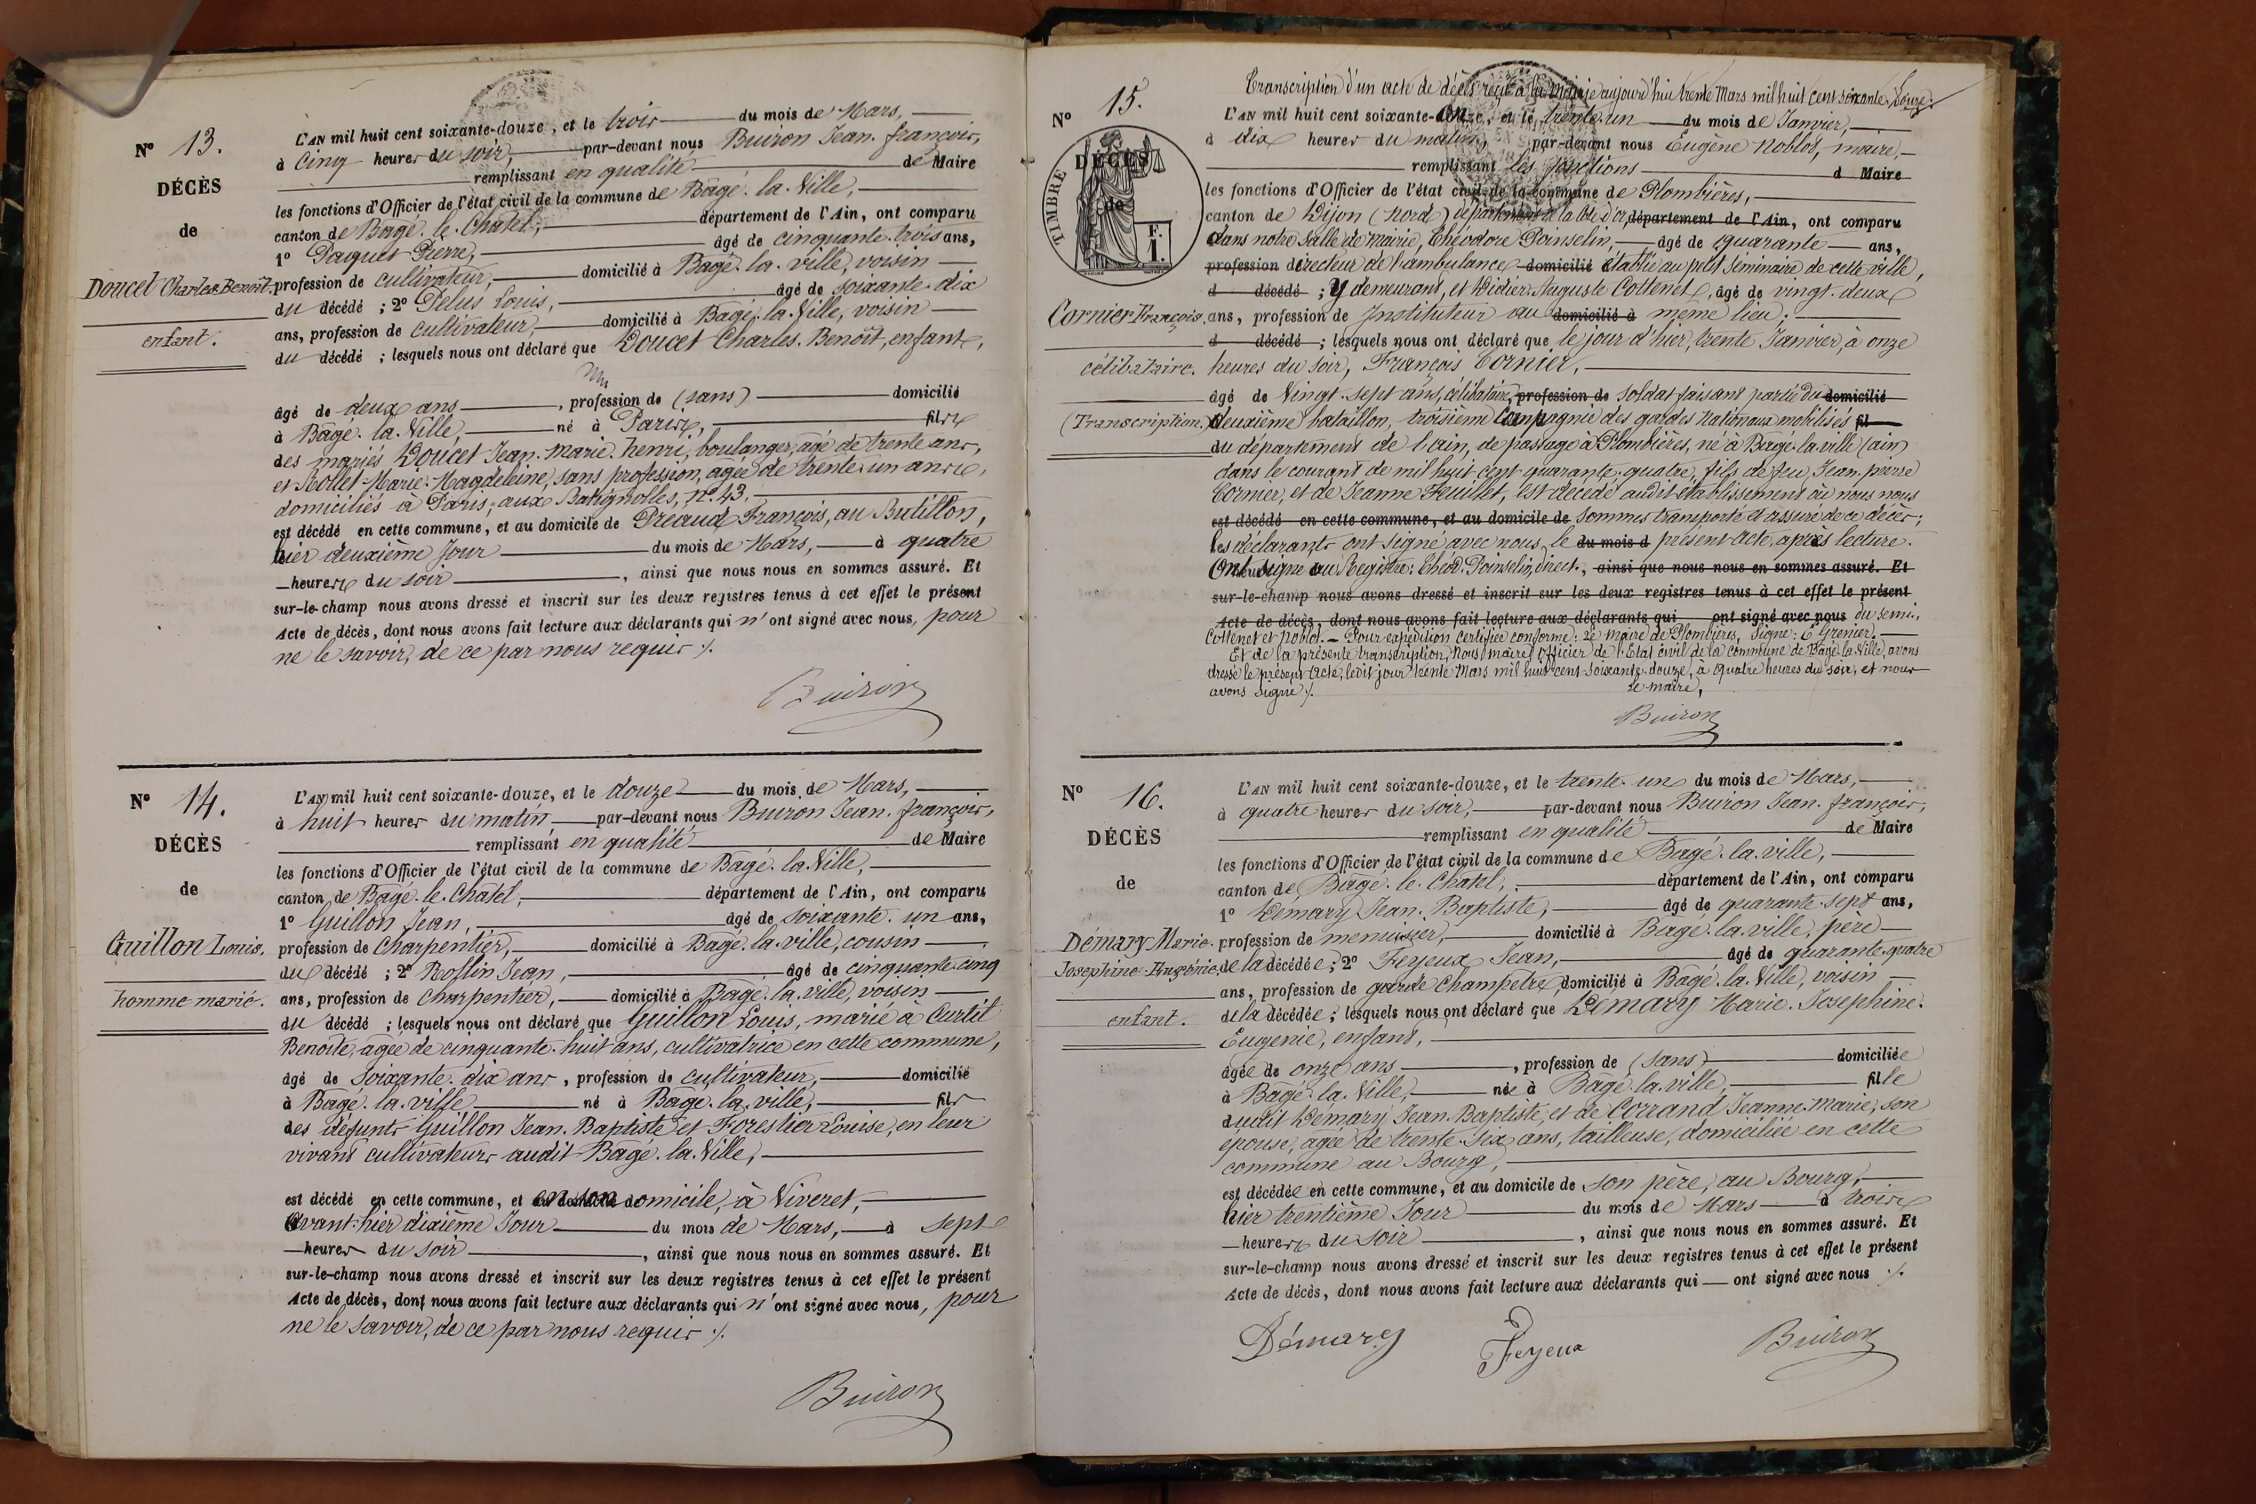 N° 13.
DÉCÈS
de
Doucet Charles Benoît.
enfant.
L'AN mil huit cent soixante-douze, et le trois du mois de Mars,
à cinq heures du soir, par-devant nous Buiron Jean. françois,
remplissant en qualité de Maire
les fonctions d'Officier de l'état civil de la commune de Bâgé. la. Ville,
canton de Bâgé. le. Chatel, département de l'Ain, ont comparu
1° Paquet Pierre, âgé de cinquante. trois ans,
profession de cultivateur, domicilié à Bâgé. la. ville, voisin
du décédé ; 2° Pelus Louis, âgé de soixante. dix
ans, profession de cultivateur, domicilié à Bâgé. la. Ville, voisin
du décédé ; lesquels nous ont déclaré que Doucet Charles. Benoît, enfant,
âgé de deux ans, profession de (sans) domicilié
à Bâgé. la. Ville, né à Paris, fils
des mariés Doucet Jean. marie. henri, boulanger, âgé de trente ans,
et Rollet Marie. Magdeleine, sans profession, âgée de trente. un ans,
domiciliés à Paris, aux Batignolles, n° 43.
est décédé en cette commune, et au domicile de Préaud François, au Butillon,
hier deuxième Jour du mois de Mars, à quatre
heures du soir, ainsi que nous nous en sommes assuré. Et
sur-le-champ nous avons dressé et inscrit sur les deux registres tenus à cet effet le présent
Acte de décès, dont nous avons fait lecture aux déclarants qui n'ont signé avec nous, pour
ne le savoir, de ce par nous requis ./.
Buiron
N° 14.
DÉCÈS
de
Guillon Louis.
homme marié.
L'AN mil huit cent soixante-douze, et le douze du mois de Mars,
à huit heures du matin, par-devant nous Buiron Jean. françois,
remplissant en qualité de Maire
les fonctions d'Officier de l'état civil de la commune de Bâgé. la. Ville,
canton de Bâgé. le. Chatel, département de l'Ain, ont comparu
1° Guillon Jean, âgé de soixante. un ans,
profession de Charpentier, domicilié à Bâgé. la. ville, cousin
du décédé ; 2° Roflin Jean, âgé de cinquante. cinq
ans, profession de Charpentier, domicilié à Bâgé. la. ville, voisin
du décédé ; lesquels nous ont déclaré que Guillon Louis, marié à Curtil
Benoite, agée de cinquante. huit ans, cultivatrice en cette commune,
âgé de Soixante. dix ans, profession de cultivateur, domicilié
à Bâgé. la. ville né à Bâgé. la. ville, fils
des défunts Guillon Jean. Baptiste et Forestier Louise, en leur
vivant cultivateurs audit Bâgé. la. Ville,
est décédé en cette commune, et en son domicile, à Viveret,
Avant. hier dixième Jour du mois de Mars, à sept
heures du soir, ainsi que nous nous en sommes assuré. Et
sur-le-champ nous avons dressé et inscrit sur les deux registres tenus à cet effet le présent
Acte de décès, dont nous avons fait lecture aux déclarants qui n'ont signé avec nous, pour
ne le savoir, de ce par nous requis ./.
Buiron
N° 15.
DÉCÈS
de
TIMBRE
F.
1.
Cornier François.
célibataire.
(Transcription.)
Transcription d'un acte de décès reçu à la Mairie aujourd'hui trente Mars mil huit cent soixante. douze.
L'AN mil huit cent soixante-onze, et le trente. un du mois de Janvier,
à dix heures du matin, par-devant nous Eugène Noblot, maire,
remplissant les fonctions d Maire
les fonctions d'Officier de l'état civil de la commune de Plombières,
canton de Dijon (nord) département de la côte d'or, département de l'Ain, ont comparu
dans notre Salle de mairie, Théodore Poinselin, âgé de quarante ans,
profession directeur de l'ambulance domicilié établie au petit Séminaire de cette ville,
d décédé ; y demeurant, et Didier. Auguste Cottenet, âgé de vingt. deux
ans, profession de Instituteur au domicilié à même lieu.
d décédé ; lesquels nous ont déclaré que le jour d'hier, trente Janvier, à onze
heures du soir, François Cornier,
âgé de Vingt. sept ans, célibataire, profession de soldat faisant partie du domicilié
deuxième bataillon, troisième Compagnie des gardes Nationaux mobilisés fil
du département de l'ain, de passage à Plombières, né à Bagé. la. ville (ain)
dans le courant de mil huit cent quarante. quatre, fils de feu Jean. pierre
Cornier, et de Jeanne Feuillet, est décédé audit établissement où nous nous
est décédé en cette commune, et au domicile de sommes transporté et assuré de ce décès ;
les déclarants ont signé avec nous le du mois d présent acte, après lecture.
Ont signé au Registre : Théod. Poinselin, direct., ainsi que nous nous en sommes assuré. Et
sur-le-champ nous avons dressé et inscrit sur les deux registres tenus à cet effet le présent
Acte de décès, dont nous avons fait lecture aux déclarants qui ont signé avec nous du Semi.,
Cottenet et Noblot. — Pour expédition certifiée conforme : Le maire de Plombières, Signé : E. Grenier.
Et de la présente transcription, Nous, maire, officier de l'Etat civil de la commune de Bâgé. la. Ville, avons
dressé le présent Acte, ledit jour trente Mars mil huit cent soixante. douze, à quatre heures du soir, et nous
avons signé ./.
Le maire,
Buiron
N° 16.
DÉCÈS
de
Démary Marie.
Josephine. Eugénie,
enfant.
L'AN mil huit cent soixante-douze, et le trente. un du mois de Mars,
à quatre heures du soir, par-devant nous Buiron Jean. françois,
remplissant en qualité de Maire
les fonctions d'Officier de l'état civil de la commune de Bâgé. la. ville,
canton de Bâgé. le. Chatel, département de l'Ain, ont comparu
1° Démary Jean. Baptiste, âgé de quarante. sept ans,
profession de menuisier, domicilié à Bâgé. la. ville, père
de la décédée ; 2° Feyeux Jean, âgé de quarante. quatre
ans, profession de garde Champêtre, domicilié à Bâgé. la. Ville, voisin
de la décédée ; lesquels nous ont déclaré que Démary Marie. Josephine.
Eugénie, enfant,
âgée de onze ans, profession de (sans) domiciliée
à Bâgé. la. Ville, née à Bâgé. la. ville, fille
dudit Démary Jean. Baptiste, et de Corrand Jeanne. Marie, son
épouse, âgée de trente. six ans, tailleuse, domiciliée en cette
commune au Bourg,
est décédée en cette commune, et au domicile de son père, au Bourg,
hier trentième Jour du mois de Mars à trois
heures du soir, ainsi que nous nous en sommes assuré. Et
sur-le-champ nous avons dressé et inscrit sur les deux registres tenus à cet effet le présent
Acte de décès, dont nous avons fait lecture aux déclarants qui ont signé avec nous ./.
Démary
Feyeux
Buiron